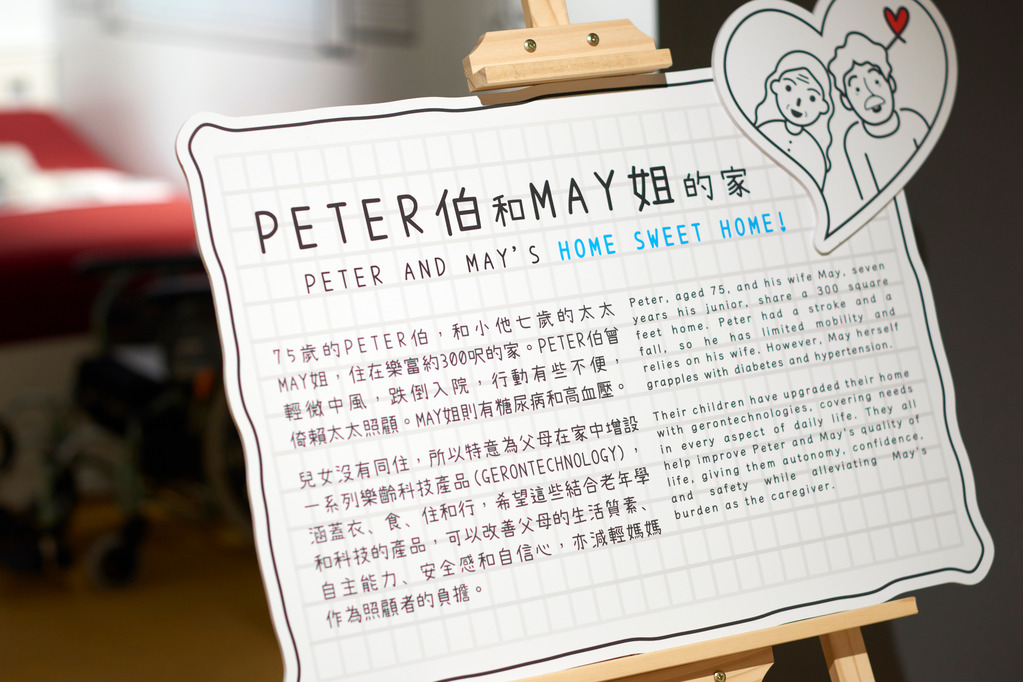 PETER伯和MAY姐的家
PETER AND MAY'S HOME SWEET HOME!
75歲的PETER伯，和小他七歲的太太
MAY姐，住在樂富約300呎的家。PETER伯曾
輕微中風，跌倒入院，行動有些不便，
倚賴太太照顧。MAY姐則有糖尿病和高血壓。
兒女沒有同住，所以特意為父母在家中增設
一系列樂齡科技產品(GERONTECHNOLOGY)，
涵蓋衣、食、住和行，希望這些結合老年學
和科技的產品，可以改善父母的生活質素、
自主能力、安全感和自信心，亦減輕媽媽
作為照顧者的負擔。
Peter, aged 75, and his wife May, seven
years his junior, share a 300 square
feet home. Peter had a stroke and a
fall, so he has limited mobility and
relies on his wife. However, May herself
grapples with diabetes and hypertension.
Their children have upgraded their home
with gerontechnologies, covering needs
in every aspect of daily life. They all
help improve Peter and May's quality of
life, giving them autonomy, confidence,
and safety while alleviating May's
burden as the caregiver.